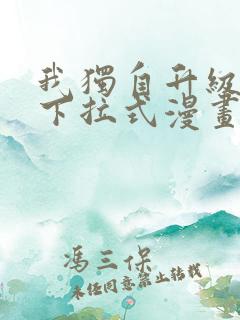 我獨自升級
下拉式漫畫
馮三保
未經同意禁止轉載